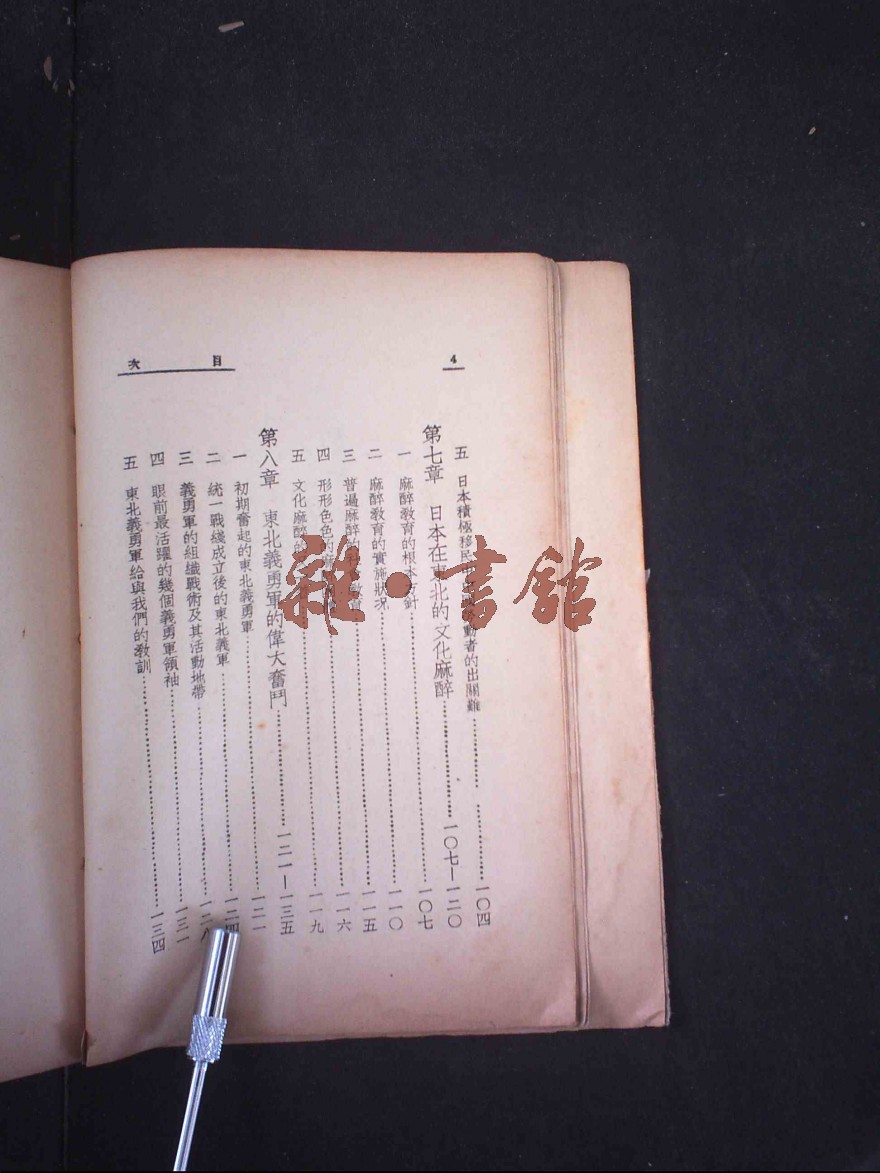 目次
4
五 日本積極移民 動者的出關難 一〇四
第七章 日本在東北的文化麻醉 一〇七—一二〇
一 麻醉教育的根本 針 一〇七
二 麻醉教育的實施狀况 一一〇
三 普遍麻醉的 一一五
四 形形色色的 一一六
五 文化麻醉的 一一九
第八章 東北義勇軍的偉大奮鬥 一二一—一三五
一 初期奮起的東北義勇軍 一二一
二 統一戰綫成立後的東北義軍 一二四
三 義勇軍的組織戰術及其活動地帶 一二八
四 眼前最活躍的幾個義勇軍領袖 一三一
五 東北義勇軍給與我們的教訓 一三四
雜·書館